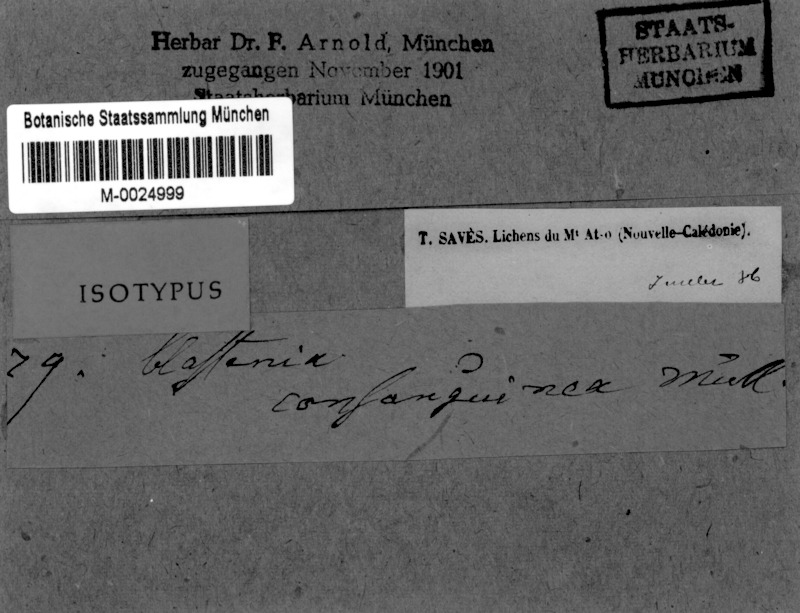 Herbar Dr. F. Arnold, München
zugegangen November 1901
Staatsherbarium München
STAATS-
HERBARIUM
MÜNCHEN
Botanische Staatssammlung München
M-0024999
T. SAVÈS. Lichens du Mt Atso (Nouvelle-Calédonie).
86
ISOTYPUS
29. Blastenia
consanguinea Müll.